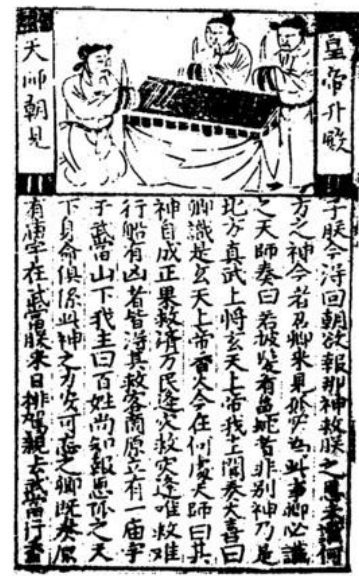 皇帝升殿
天師朝見
子朕今淂回朝欲報那神救朕之恩未識何
方之神今召卿来見為此事卿必識
之天師奏曰若披髮有龜蛇者非別神乃是
北方真武上將玄天上帝我主聞奏大喜曰
卿識是玄天上帝香火今在何處天師曰其
神自成正果救濟万民逢火救灾逢难救难
行船有凶者皆得其救客商原立有一庙宇
于武當山下我主曰百姓尚知報恩你之天
下身命俱係此神之力安可忘之卿既奏原
有庙宇在武當朕来日排駕親去武當行香